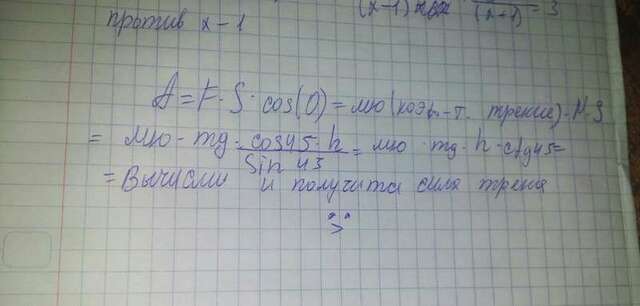 против x-1
(x-1) (x+1) = 3
A = F · S · cos(0) = мю (коэф-т. трение) · N · S
= мю · mg · cos45 · h / sin 45 = мю · mg · h · ctg45 =
= Вычисли и получита сила трения